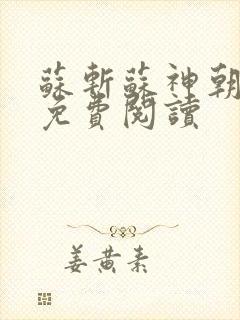 蘇斬蘇神朝
免費閱讀
姜黄素